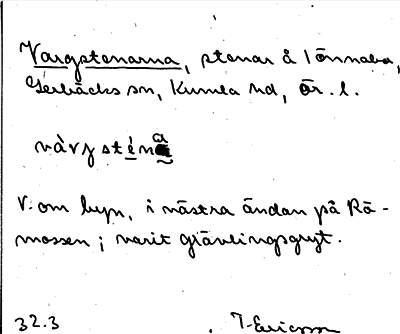 Vargstenarna, stenar å Lönnaba,
Gerbäcks sn, Kumla hd, Ör. l.
vàrgsténa
V. om byn, i västra ändan på Rå-
mossen; varit grävlingsgryt.
32.3 T. Ericsson